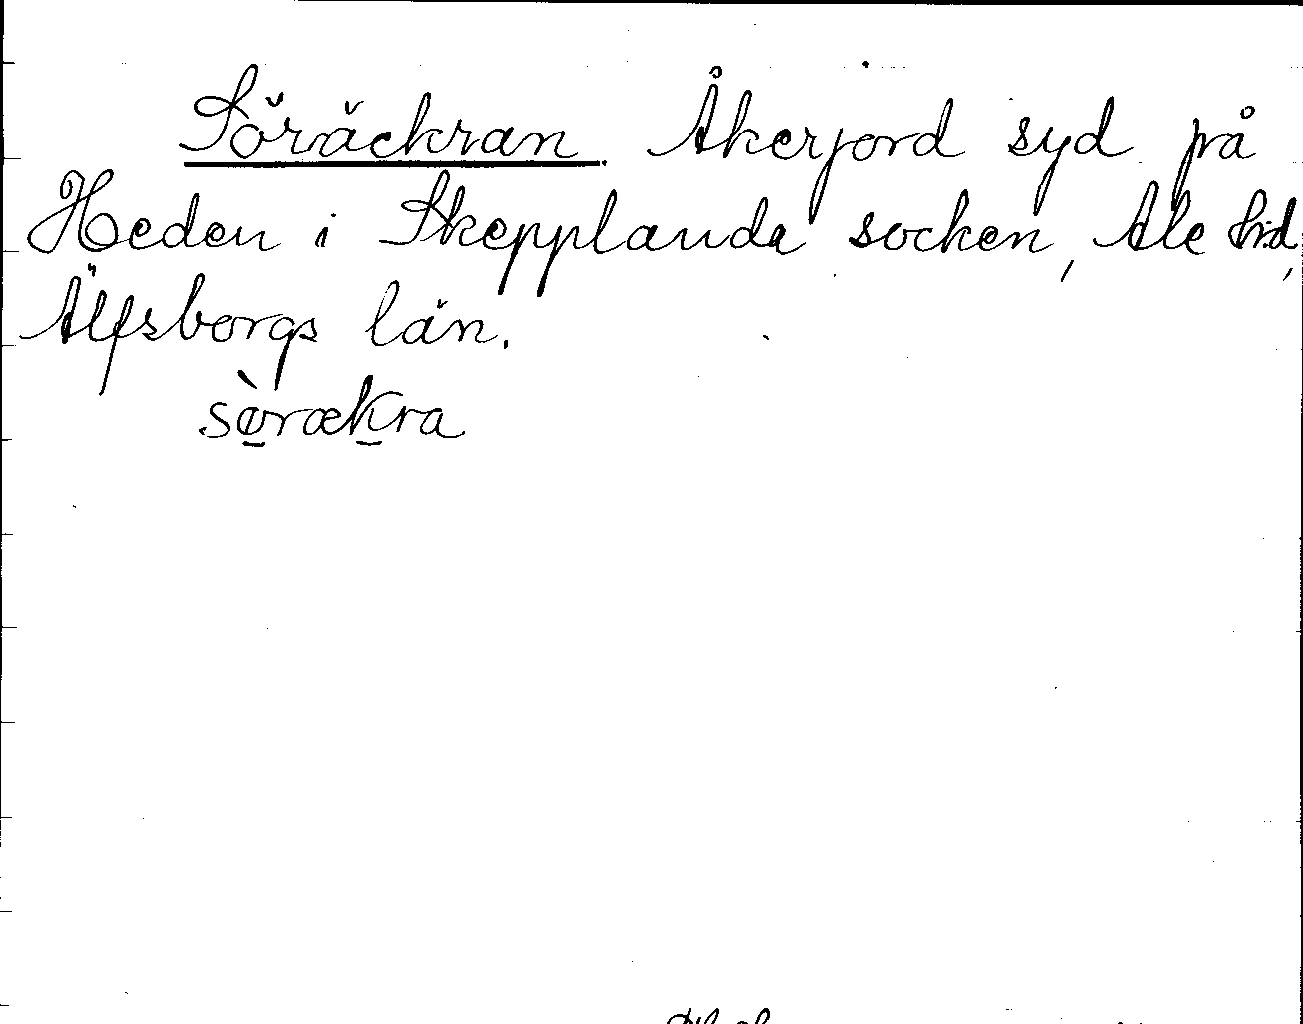 Söräckran. Åkerjord syd på
Heden i Skepplanda socken, Ale hrd,
Älfsborgs län.
sø̀rækra